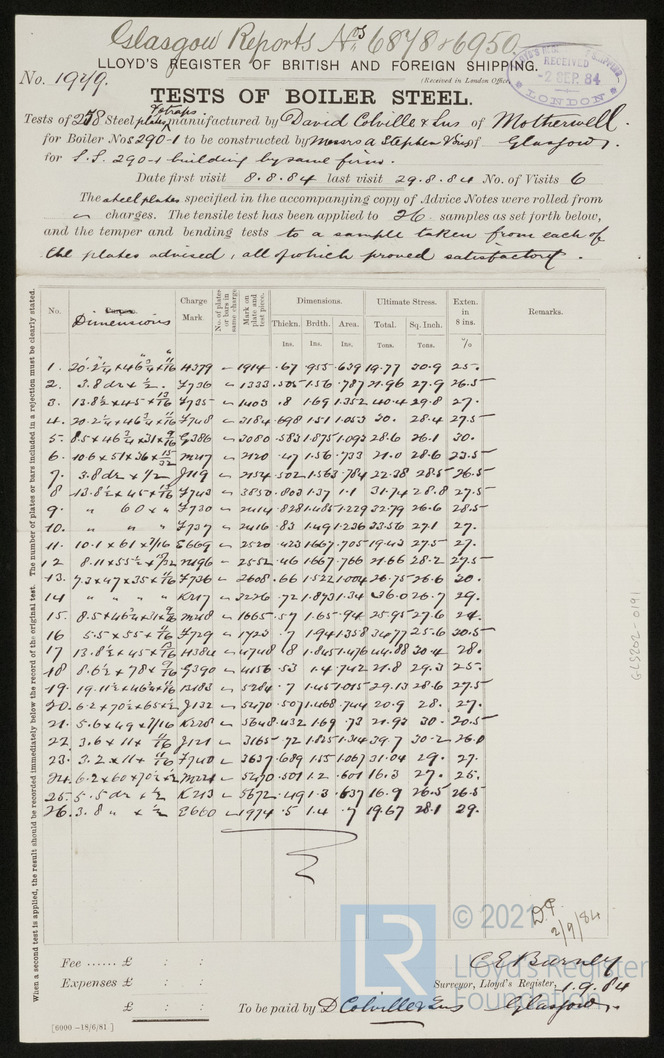 Glasgow Reports Nos 6878 & 6950.
LLOYD'S REGISTER OF BRITISH AND FOREIGN SHIPPING.
No. 1949.
(Received in London Office
RECEIVED
2 SEP. 84
LONDON
TESTS OF BOILER STEEL.
Tests of 258 Steel plates & straps manufactured by David Colville & Sns of Motherwell.
for Boiler Nos 290-1 to be constructed by Messrs A Stephen & Sns of Glasgow.
for S.S. 290-1 building by same firm.
Date first visit 8.8.84 last visit 29.8.84 No. of Visits 6
The steel plates specified in the accompanying copy of Advice Notes were rolled from
charges. The tensile test has been applied to 26 samples as set forth below,
and the temper and bending tests to a sample taken from each of
the plates advised, all of which proved satisfactory.
No. Dimensions Charge Mark. No. of plates or bars in same charge. Mark on plate and test piece. Dimensions. Ultimate Stress. Exten. in 8 ins. Remarks.
Thickn. Brdth. Area. Total. Sq. Inch.
Ins. Ins. Ins. Tons. Tons. %
1. H379 1914 .67 .955 .639 19.77 30.9 25.
2. 3.8 dr x ½. 7736 1333 .505 1.56 .787 21.96 27.9 26.5
3. 13.8½ x 45 x 13/16 7735 1403 .8 1.69 1.352 40.4 29.8 27.
4. 7748 2184 .698 1.51 1.053 30. 28.4 27.5
5. G386 2080 .583 1.875 1.093 28.6 26.1 30.
6. 10.6 x 51 x 36 x 15/32 M217 2120 .47 1.56 .733 21.0 28.6 23.5
7. 3.8 dr x ½ J119 2154 .502 1.563 .784 22.38 28.5 26.5
8 13.8½ x 45 x 13/16 7743 3850 .803 1.37 1.1 31.74 28.8 27.5
9. " 60 x " 7730 2414 .828 1.485 1.229 32.79 26.6 28.5
10. " " " 7737 2416 .83 1.49 1.236 33.56 27.1 27.
11. 10.1 x 61 x 7/16 E669 2520 .423 1.667 .705 19.43 27.5 27.
12 8.11 x 55½ x 15/32 M196 2552 .46 1.667 .766 21.66 28.2 27.5
13. 7.3 x 47 x 35 x 11/16 7736 2608 .66 1.522 1.004 26.75 26.6 20.
14 " " " " K217 3226 .72 1.873 1.34 36.0 26.7 29.
15. M218 1665 .57 1.65 .94 25.95 27.6 24.
16 5.5 x 55 x 11/16 7729 1723 .7 1.94 1.358 34.77 25.6 30.5
17 13.8½ x 45 x 13/16 H384 4748 .8 1.845 1.476 44.88 30.4 28.
18 8.6½ x 78 x 9/16 G390 4156 .53 1.4 .742 21.8 29.3 25.
19. 5284 .7 1.45 1.015 29.13 28.6 27.5
20. 6.2 x 70½ x 65 x ½ J132 5470 .507 1.468 .744 20.9 28. 27.
21. 5.6 x 49 x 7/16 K228 5648 .432 1.69 .73 21.93 30. 20.5
22. 3.6 x 11 x 11/16 J121 3165 .72 1.825 1.314 39.7 30.2 26.0
23. 3.2 x 11 x 11/16 7740 3637 .689 1.55 1.067 31.04 29. 27.
24. 6.2 x 60 x 70½ x ½ M221 5470 .501 1.2 .601 16.3 27. 25.
25. 5.5 dr x ½ K213 5672 .49 1.3 .637 16.9 26.5 26.5
26. 3.8 " x ½ E660 1974 .5 1.4 .7 19.67 28.1 29.
When a second test is applied, the result should be recorded immediately below the record of the original test. The number of plates or bars included in a rejection must be clearly stated.
GLS202-0191
2/9/84
Fee ...... £ : :
Expenses £ : :
£ : :
C E Barney
Surveyor, Lloyd's Register,
1.9.84
To be paid by D Colville & Sns Glasgow.
[6000 –18/6/81]
LR
© 2021
Lloyd's Register
Foundation